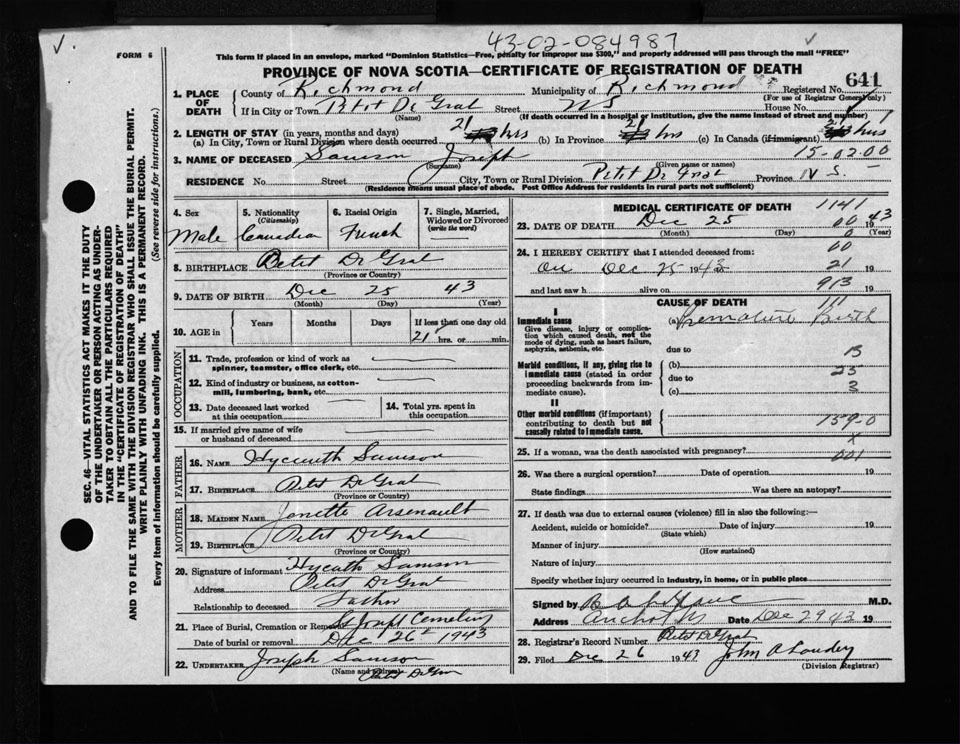 43-02-084987
FORM 6
This form if placed in an envelope, marked "Dominion Statistics—Free, penalty for improper use $300," and properly addressed will pass through the mail "FREE"
PROVINCE OF NOVA SCOTIA—CERTIFICATE OF REGISTRATION OF DEATH
641
1. PLACE OF DEATH
County of Richmond Municipality of Richmond Registered No.
(For use of Registrar General only)
If in City or Town Petit De Grat Street NS House No. 1
(Name) (If death occurred in a hospital or institution, give the name instead of street and number)
2. LENGTH OF STAY (in years, months and days)
(a) In City, Town or Rural Division where death occurred 21 hrs (b) In Province 21 hrs (c) In Canada (if immigrant) 21 hrs
15-02.00
3. NAME OF DECEASED Samson Joseph
(Surname) (Given name or names)
RESIDENCE No. Street City, Town or Rural Division Petit De Grat Province N S.
(Residence means usual place of abode. Post Office Address for residents in rural parts not sufficient)
4. Sex
Male
5. Nationality (Citizenship)
Canadian
6. Racial Origin
French
7. Single, Married, Widowed or Divorced (write the word)
8. BIRTHPLACE Petit De Grat
(Province or Country)
9. DATE OF BIRTH Dec 25 43
(Month) (Day) (Year)
10. AGE in
Years Months Days If less than one day old
21 hrs. or min.
OCCUPATION
11. Trade, profession or kind of work as spinner, teamster, office clerk, etc.
12. Kind of industry or business, as cotton-mill, lumbering, bank, etc.
13. Date deceased last worked at this occupation
14. Total yrs. spent in this occupation
15. If married give name of wife or husband of deceased
FATHER
16. NAME Hycinth Samson
17. BIRTHPLACE Petit De Grat
(Province or Country)
MOTHER
18. MAIDEN NAME Jenette Arsenault
19. BIRTHPLACE Petit DeGrat
(Province or Country)
20. Signature of informant Hycath Samson
Address Petit DeGrat
Relationship to deceased Father
21. Place of Burial, Cremation or Removal St Joseph Cemetery
Date of burial or removal Dec 26t 1943
22. UNDERTAKER Joseph Samson
(Name and address)
MEDICAL CERTIFICATE OF DEATH
1141
23. DATE OF DEATH Dec 25 1943
(Month) (Day) (Year)
00
0
24. I HEREBY CERTIFY that I attended deceased from:
00
on Dec 25 1943 21 19
and last saw h alive on 913 19
CAUSE OF DEATH
I
Immediate cause
Give disease, injury or complication which caused death, not the mode of dying, such as heart failure, asphyxia, asthenia, etc.
(a) Premature Birth
11
due to
13
Morbid conditions, if any, giving rise to immediate cause (stated in order proceeding backwards from immediate cause).
(b)
25
due to
(c) 3
II
Other morbid conditions (if important) contributing to death but not causally related to immediate cause.
159-0
x
25. If a woman, was the death associated with pregnancy? 001
26. Was there a surgical operation? Date of operation 19
State findings Was there an autopsy?
27. If death was due to external causes (violence) fill in also the following:—
Accident, suicide or homicide? Date of injury 19
(State which)
Manner of injury
(How sustained)
Nature of injury
Specify whether injury occurred in industry, in home, or in public place
Signed by M.D.
Address Date Dec 29 43 19
28. Registrar's Record Number Petit DeGrat
29. Filed Dec 26 1943
(Division Registrar)
SEC. 46—VITAL STATISTICS ACT MAKES IT THE DUTY
OF THE UNDERTAKER OR PERSON ACTING AS UNDER-
TAKER TO OBTAIN ALL THE PARTICULARS REQUIRED
IN THE "CERTIFICATE OF REGISTRATION OF DEATH"
AND TO FILE THE SAME WITH THE DIVISION REGISTRAR WHO SHALL ISSUE THE BURIAL PERMIT.
WRITE PLAINLY WITH UNFADING INK. THIS IS A PERMANENT RECORD.
Every item of information should be carefully supplied. (See reverse side for instructions.)